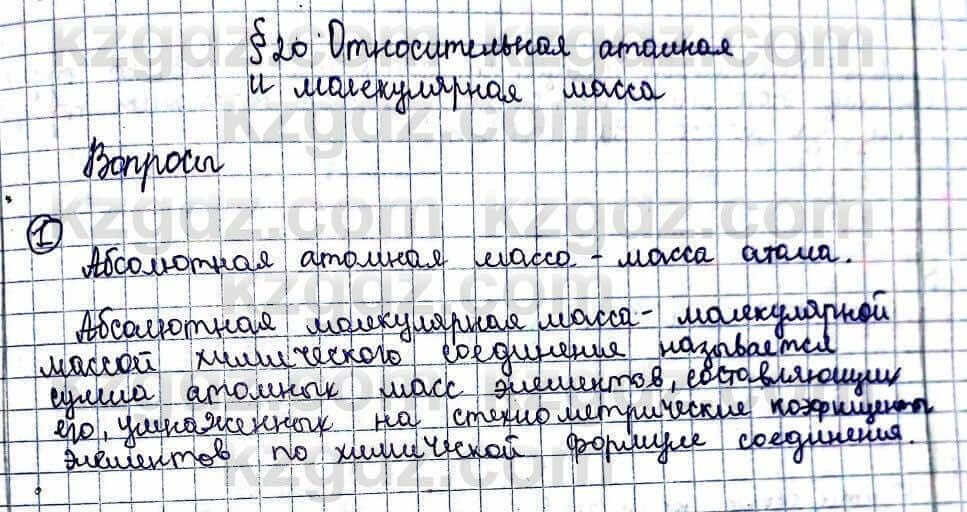 §20. Относительная атомная
и молекулярная масса
Вопросы
1
Абсолютная атомная масса - масса атома.
Абсолютная молекулярная масса - молекулярной
массой химического соединения называется
сумма атомных масс элементов, составляющих
его, умноженных на стехиометрические коэфициенты
элементов по химической формуле соединения.
kzgdz.com